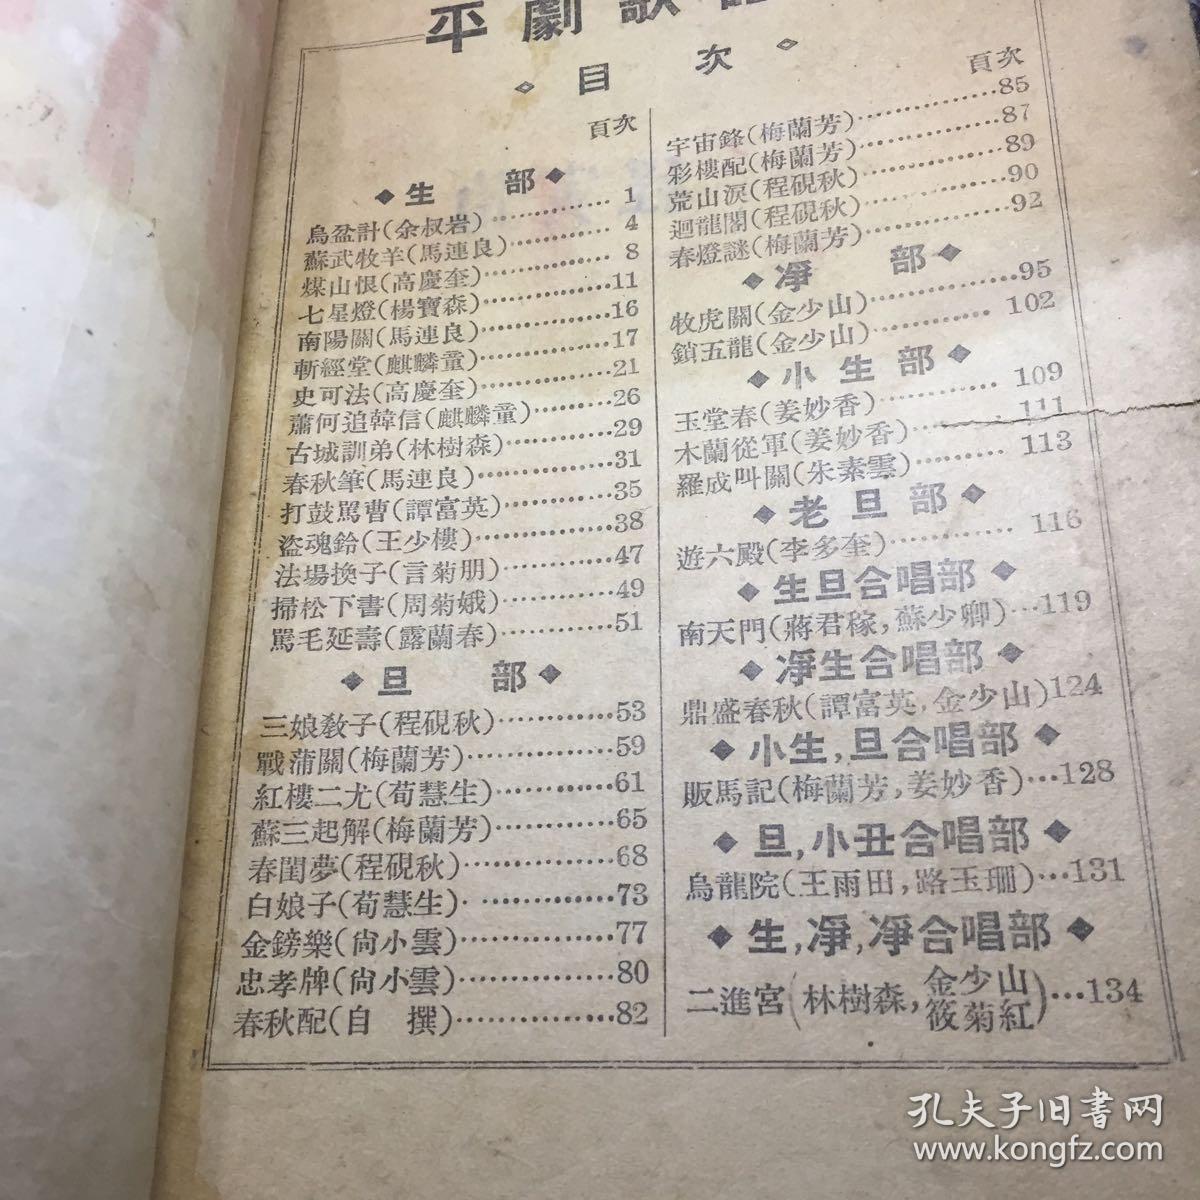 平劇歌
目次
頁次
生部
烏盆計(余叔岩)…………1
蘇武牧羊(馬連良)…………4
煤山恨(高慶奎)…………8
七星燈(楊寶森)…………11
南陽關(馬連良)…………16
斬經堂(麒麟童)…………17
史可法(高慶奎)…………21
蕭何追韓信(麒麟童)…………26
古城訓弟(林樹森)…………29
春秋筆(馬連良)…………31
打鼓罵曹(譚富英)…………35
盜魂鈴(王少樓)…………38
法場換子(言菊朋)…………47
掃松下書(周菊娥)…………49
罵毛延壽(露蘭春)…………51
旦部
三娘教子(程硯秋)…………53
戰蒲關(梅蘭芳)…………59
紅樓二尤(荀慧生)…………61
蘇三起解(梅蘭芳)…………65
春閨夢(程硯秋)…………68
白娘子(荀慧生)…………73
金鎊樂(尙小雲)…………77
忠孝牌(尙小雲)…………80
春秋配(自撰)…………82
頁次
宇宙鋒(梅蘭芳)…………85
彩樓配(梅蘭芳)…………87
荒山淚(程硯秋)…………89
迴龍閣(程硯秋)…………90
春燈謎(梅蘭芳)…………92
凈部
牧虎關(金少山)…………95
鎖五龍(金少山)…………102
小生部
玉堂春(姜妙香)…………109
木蘭從軍(姜妙香)…………111
羅成叫關(朱素雲)…………113
老旦部
遊六殿(李多奎)…………116
生旦合唱部
南天門(蔣君稼,蘇少卿)…119
凈生合唱部
鼎盛春秋(譚富英,金少山)124
小生,旦合唱部
販馬記(梅蘭芳,姜妙香)…128
旦,小丑合唱部
烏龍院(王雨田,路玉珊)…131
生,凈,凈合唱部
二進宮(林樹森,金少山 筱菊紅)…134
孔夫子旧书网
www.kongfz.com